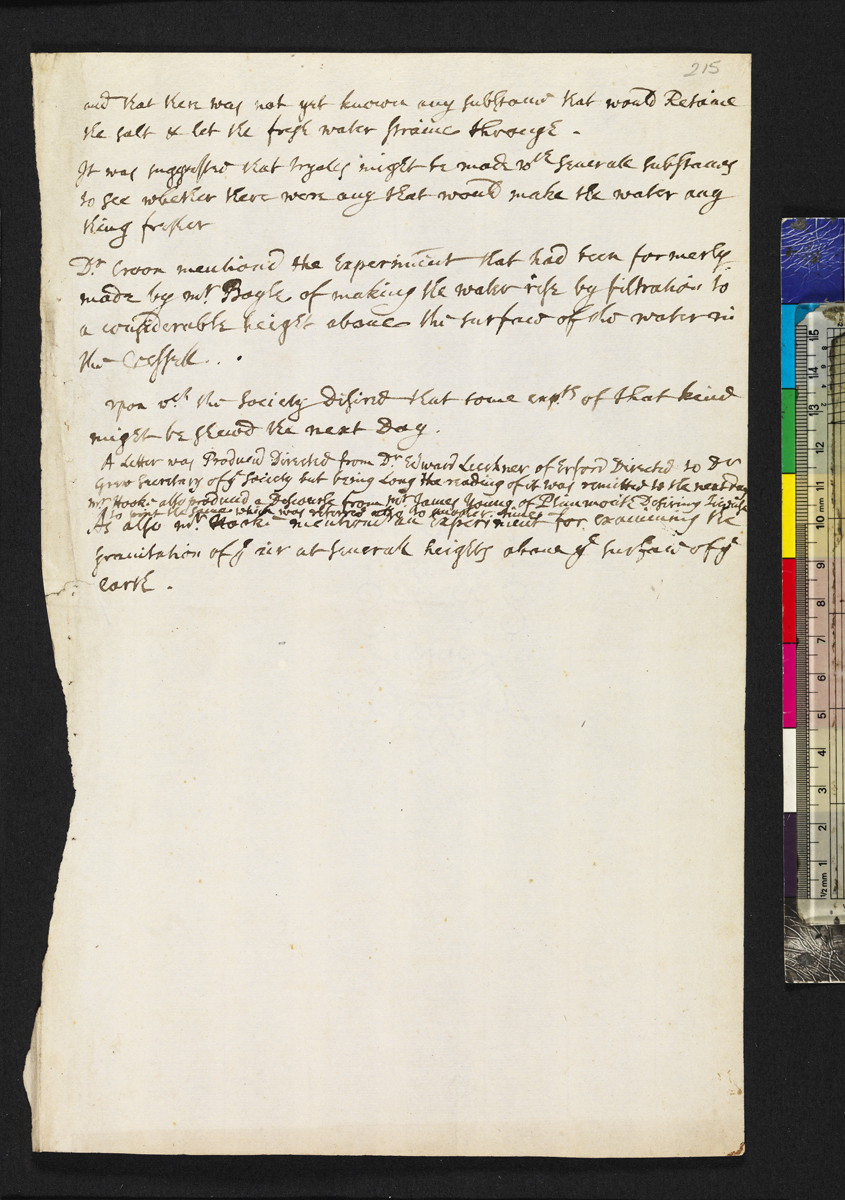 215
and that there was not yet known any substance that would Retaine
the salt & let the fresh water straine through .
It was suggested that tryalls might be made wth severall substances
to see whether there were any that would make the water any
thing fresher
Dr Croon mentiond the Experiment that had been formerly
made by mr Boyle of making the water rise by filtration to
a considerable height above the surface of the water in
the vessell . .
vpon wch the Society Desired that some expts of that kind
might be shewd the next Day .
A Letter was Producd Directed from Dr Edward of Erford Directed to Dr
Grew Secretary of ye Society but being Long the reading of it was remitted to the next day
mr Hooke also producd a Discourse from mr James Young of Plimmoth Desiring
to print the same which was referred also to another time
As also mr Hooke mentiond an Experiment for examining the
gravitation of ye air at severall heights above ye surface of ye
earth .
15
14
13
12
11
10 mm
9
8
7
6
5
4
3
2
1
1/2 mm